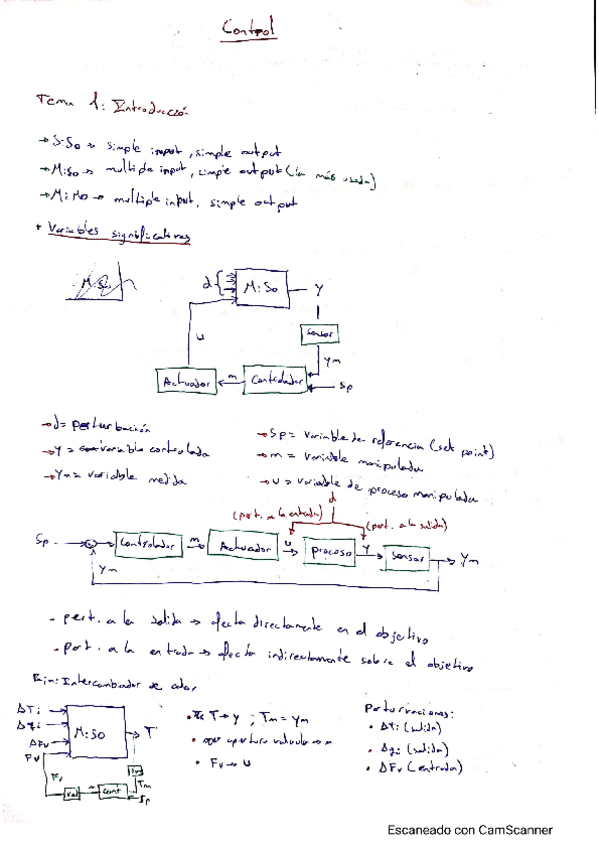 Control
Tema 1: Introducción
→ SiSo → simple input, simple output
→ MiSo → multiple input, simple output (la más usada)
→ MiMo → multiple input, simple output
* Variables significativas
MiSo
d
MiSo
y
sensor
u
ym
Actuador
m
Controlador
Sp
→ d = perturbación
→ Sp = variable de referencia (set point)
→ y = variable controlada
→ m = variable manipulada
→ Ym = variable medida
→ u = variable de proceso manipulada
d
(pert. a la entrada)
(pert. a la salida)
Sp
Controlador
m
Actuador
u
proceso
y
sensor
Ym
Ym
- pert. a la salida → afecta directamente en el objetivo
- pert. a la entrada → afecta indirectamente sobre el objetivo
Ejm: Intercambiador de calor
ΔTi
Δqi
ΔFv
Fv
MiSO
T
Tm
m
cont
Sp
• T → y ; Tm = ym
• apertura valvula → m
• Fv → u
Perturvaciones:
• ΔTi (salida)
• Δqi (salida)
• ΔFv (entrada)
Escaneado con CamScanner